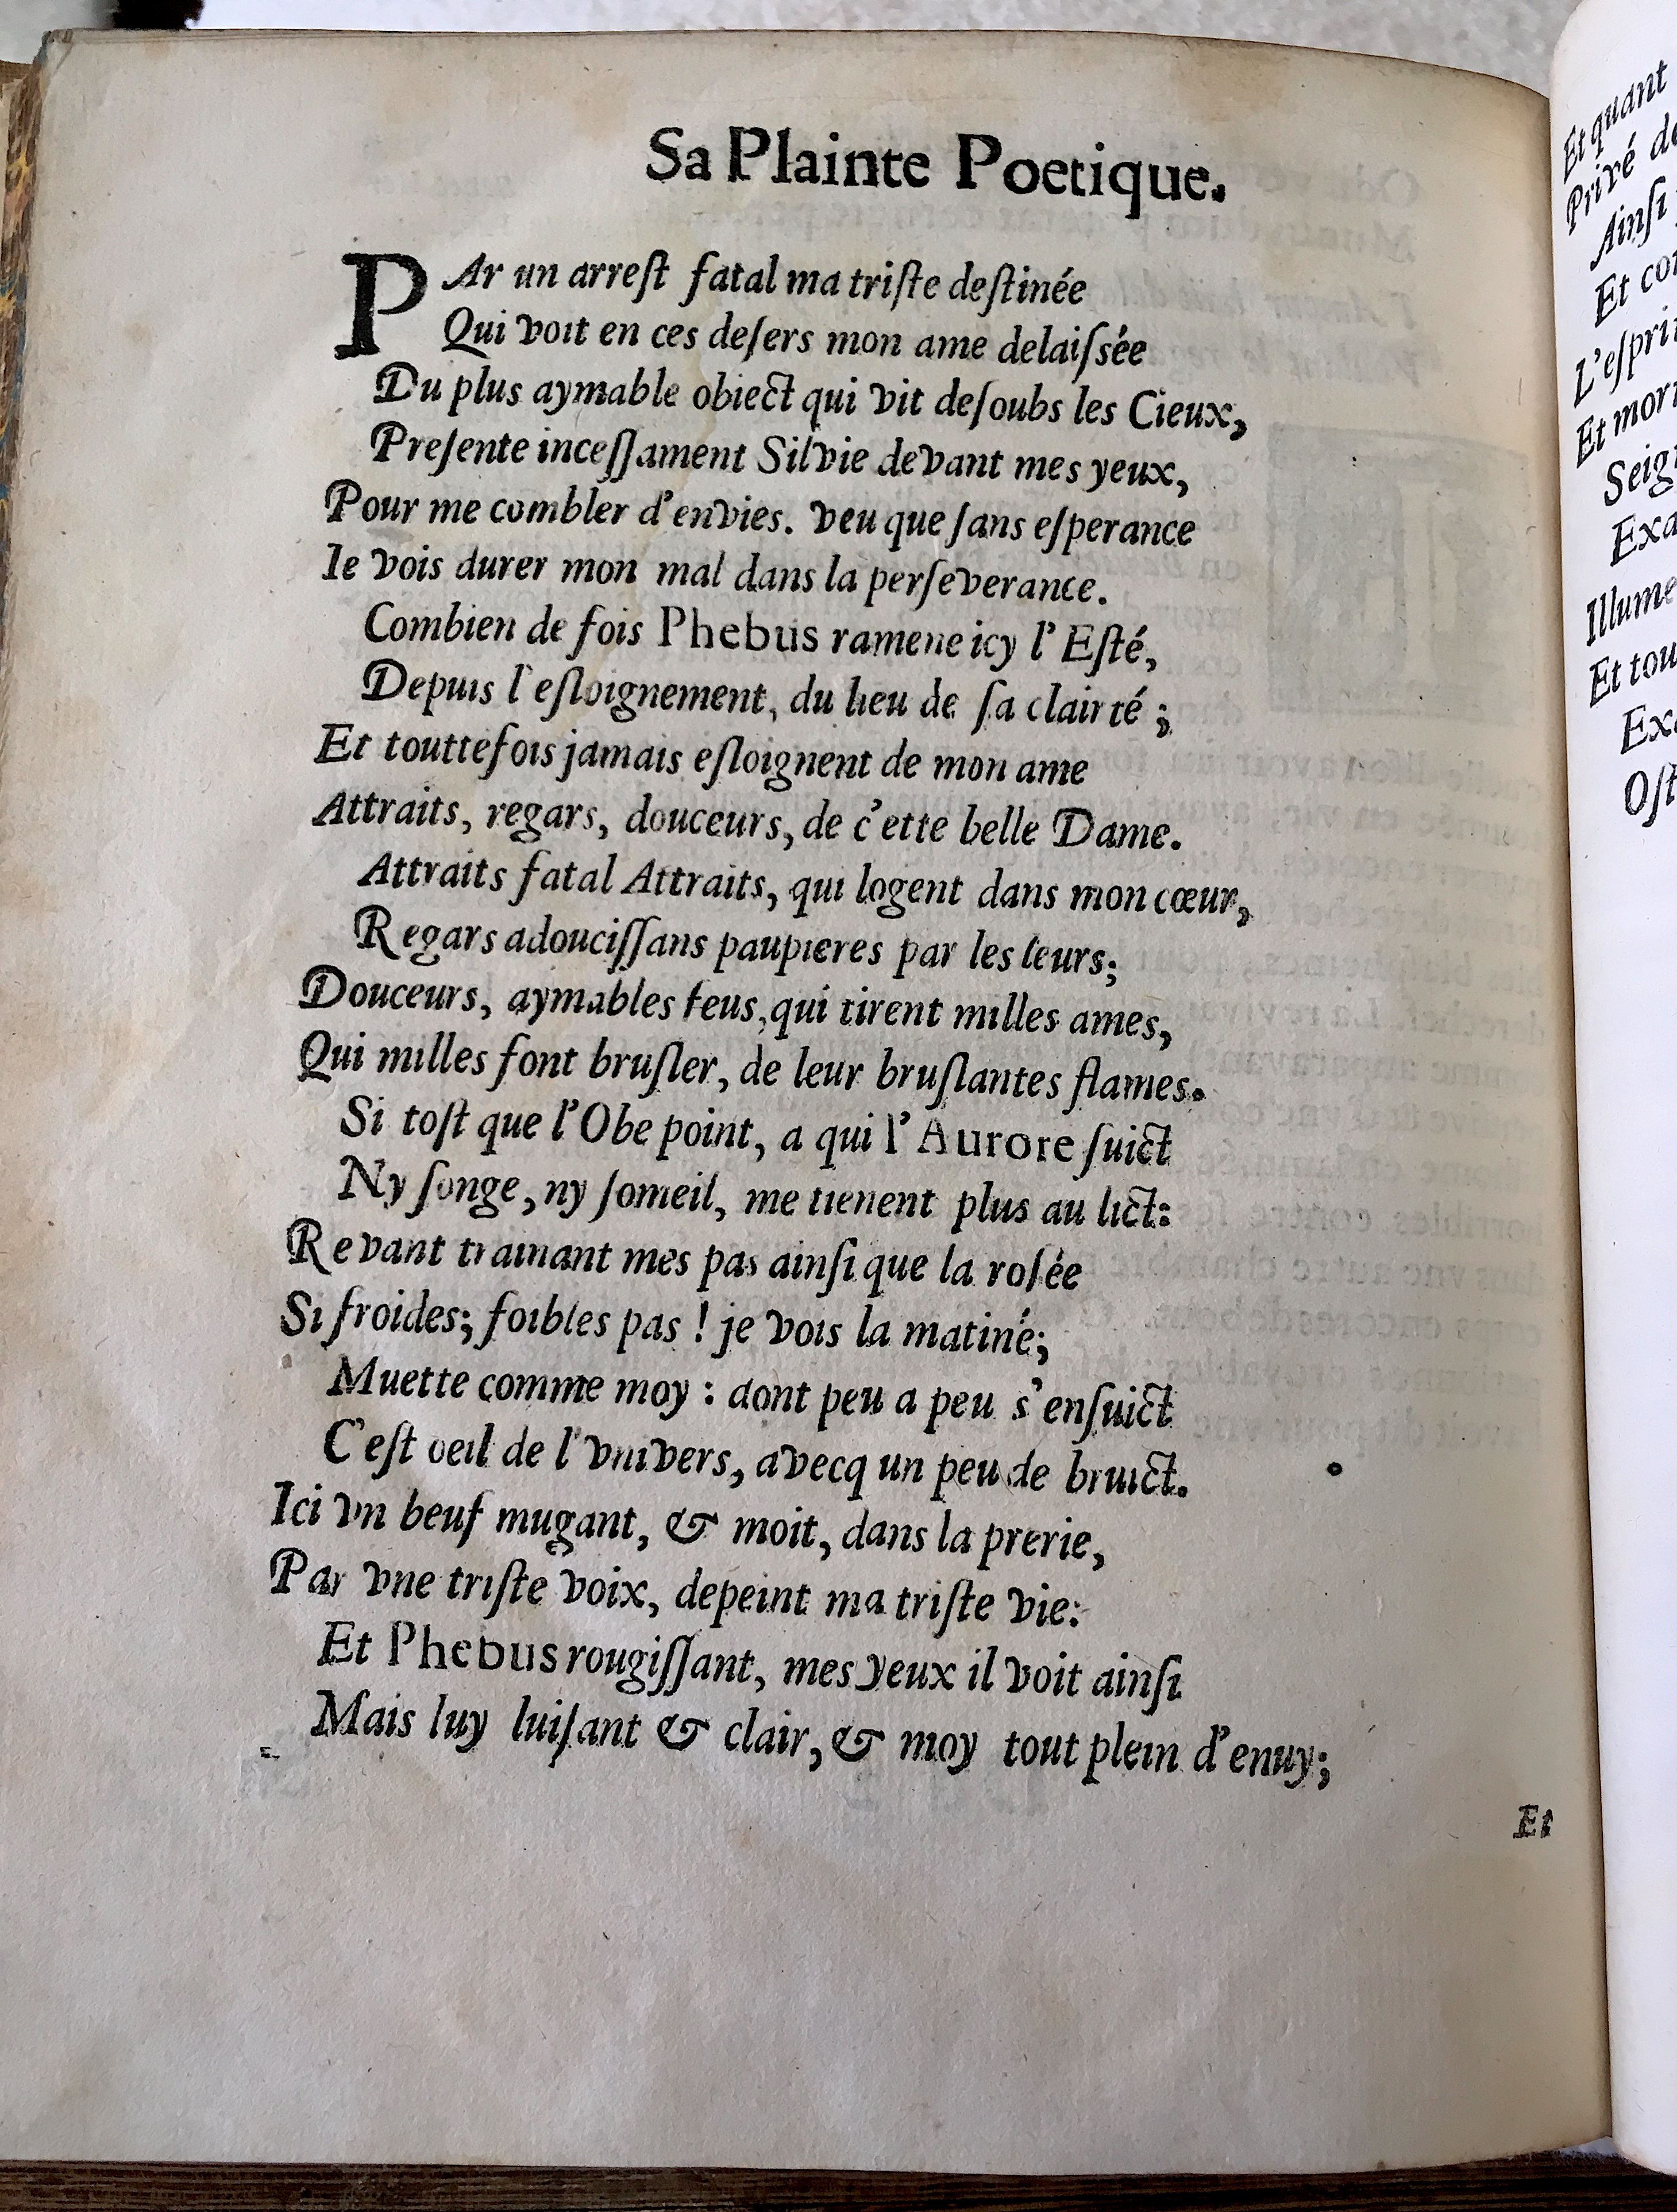 Sa Plainte Poetique.
PAr un arreſt fatal ma triſte deſtinée
Qui voit en ces deſers mon ame delaiſsée
Du plus aymable obiect qui vit deſoubs les Cieux,
Preſente inceſſament Silvie devant mes yeux,
Pour me combler d'envies. veu que ſans eſperance
Ie vois durer mon mal dans la perſeverance.
Combien de fois Phebus ramene icy l'Eſté,
Depuis l'eſloignement, du lieu de ſa clairté ;
Et touttefois jamais eſloignent de mon ame
Attraits, regars, douceurs, de c'ette belle Dame.
Attraits fatal Attraits, qui logent dans mon cœur,
Regars adouciſſans paupieres par les leurs;
Douceurs, aymables feus, qui tirent milles ames,
Qui milles font bruſler, de leur bruſlantes flames.
Si toſt que l'Obe point, a qui l'Aurore ſuict
Ny ſonge, ny ſomeil, me tienent plus au lict:
Revant trainant mes pas ainſi que la roſée
Si froides; foibles pas ! je vois la matiné;
Muette comme moy : dont peu a peu s'enſuict
C'eſt oeil de l'vnivers, avecq un peu de bruict.
Ici vn beuf mugant, & moit, dans la prerie,
Par vne triſte voix, depeint ma triſte vie:
Et Phebus rougiſſant, mes yeux il voit ainſi
Mais luy luiſant & clair, & moy tout plein d'enuy;
Et
Et quant
Privé de
Ainſi
Et
L'eſprit
Et
Exa
Illume
Et tou
Exa
Oſt